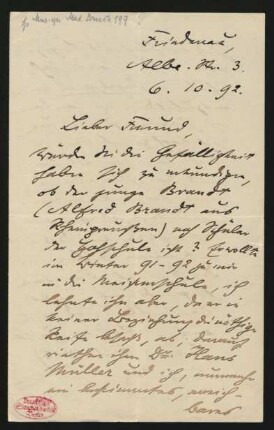 Friedenau,
Albe-Str. 3.
6. 10. 92.
Lieber Freund,
würden Sie die Gefälligkeit
haben sich zu erkundigen,
ob der junge Brandt
(Alfred Brandt aus
Rheinpreußen) noch Schüler
der Hochschule ist? Er wollte
im Winter 91-92 zu mir
in die Meisterschule, ich
lehnte ihn aber, da er in
keiner Beziehung die nöthige
Reife besaß, ab; darauf
riethen ihm Dr. Hans
Müller und ich,
ein bestimmtes, erreich-
bares